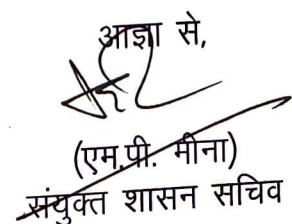 आज्ञा से,
(एम.पी. मीना)
संयुक्त शासन सचिव